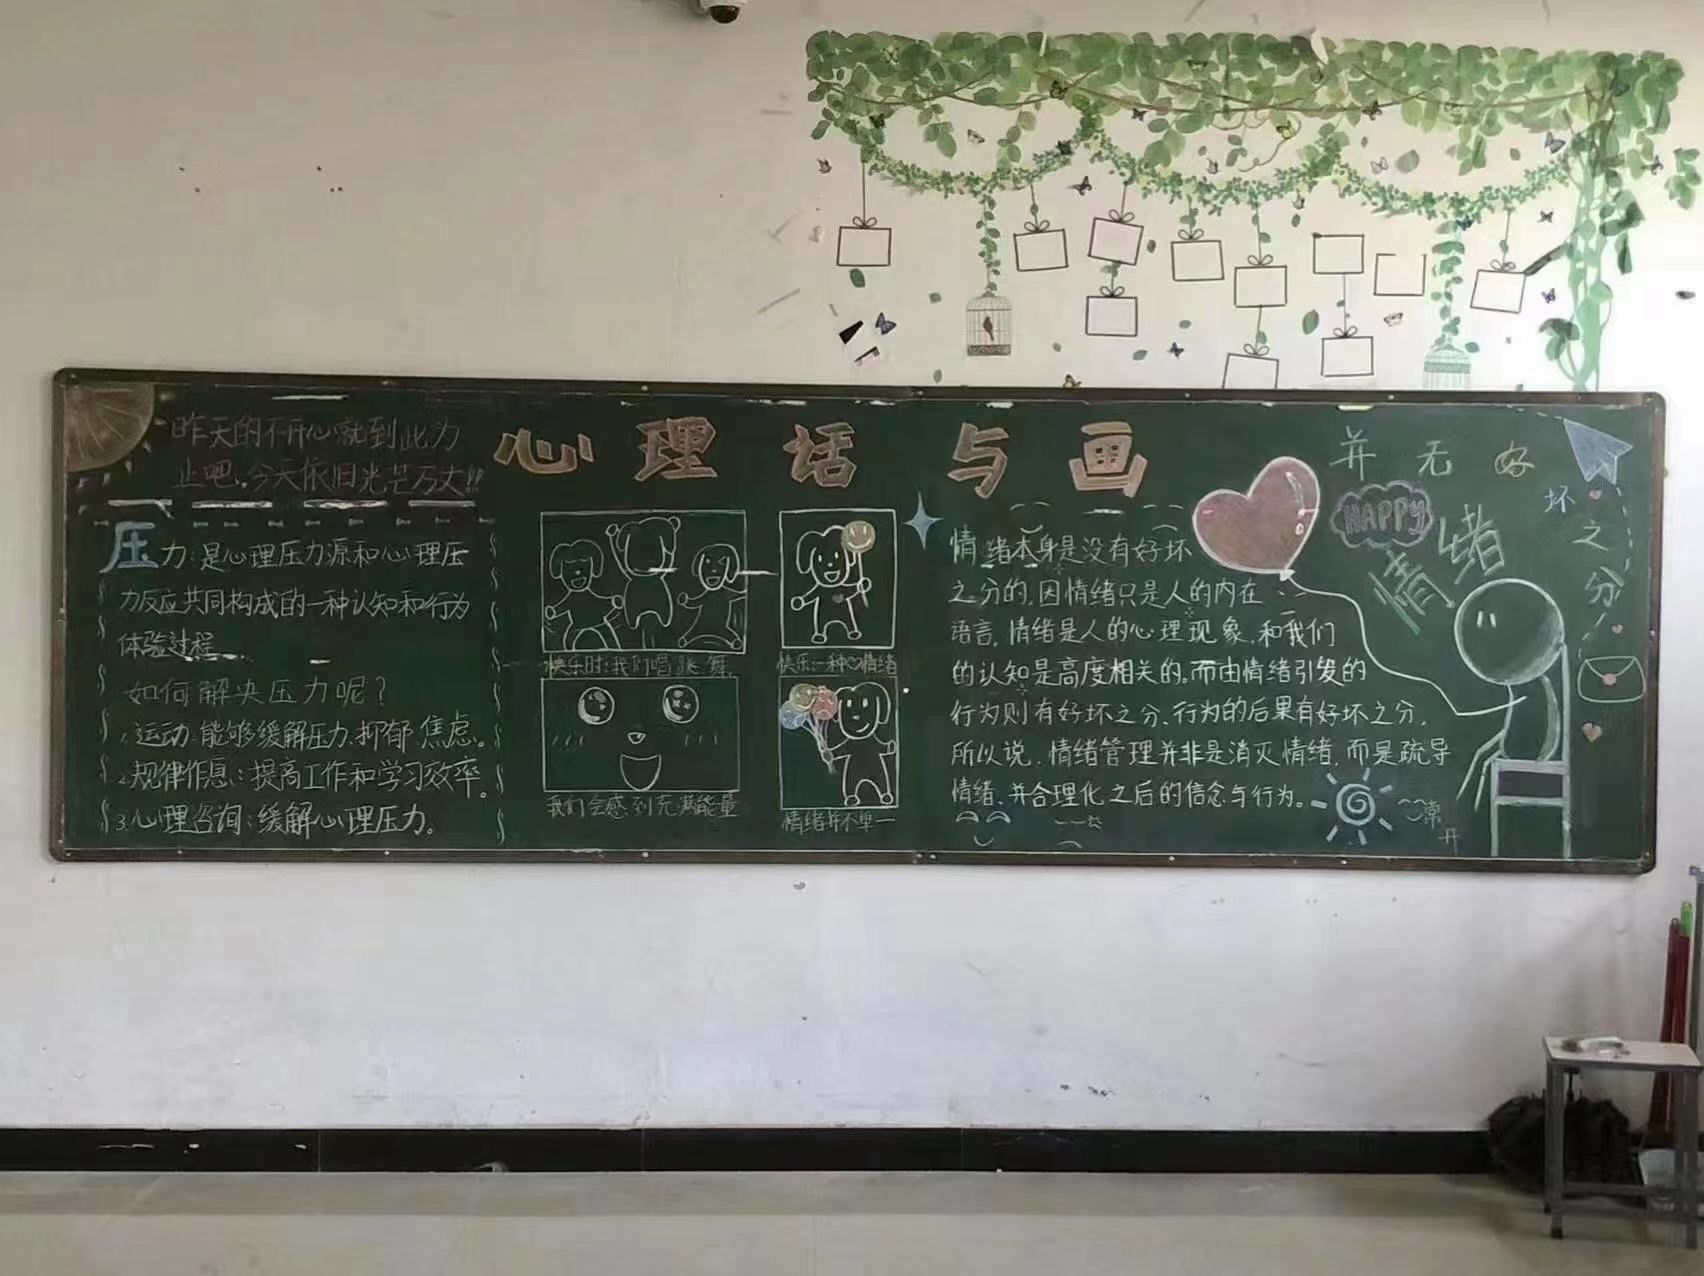 昨天的不开心就到此为
止吧。今天依旧光芒万丈!!
心理话与画
压力:是心理压力源和心理压
力反应共同构成的一种认知和行为
体验过程
如何解决压力呢?
1.运动:能够缓解压力、抑郁、焦虑。
2.规律作息:提高工作和学习效率。
3.心理咨询:缓解心理压力。
快乐时:我们唱跳舞。
快乐:一种心情绪
我们会感到充满能量
情绪并不单一
情绪本身是没有好坏
之分的,因情绪只是人的内在
语言,情绪是人的心理现象,和我们
的认知是高度相关的。而由情绪引发的
行为则有好坏之分、行为的后果有好坏之分,
所以说,情绪管理并非是消灭情绪,而是疏导
情绪、并合理化之后的信念与行为。
HAPPY
情绪
并无好
坏
之
分!
常
开